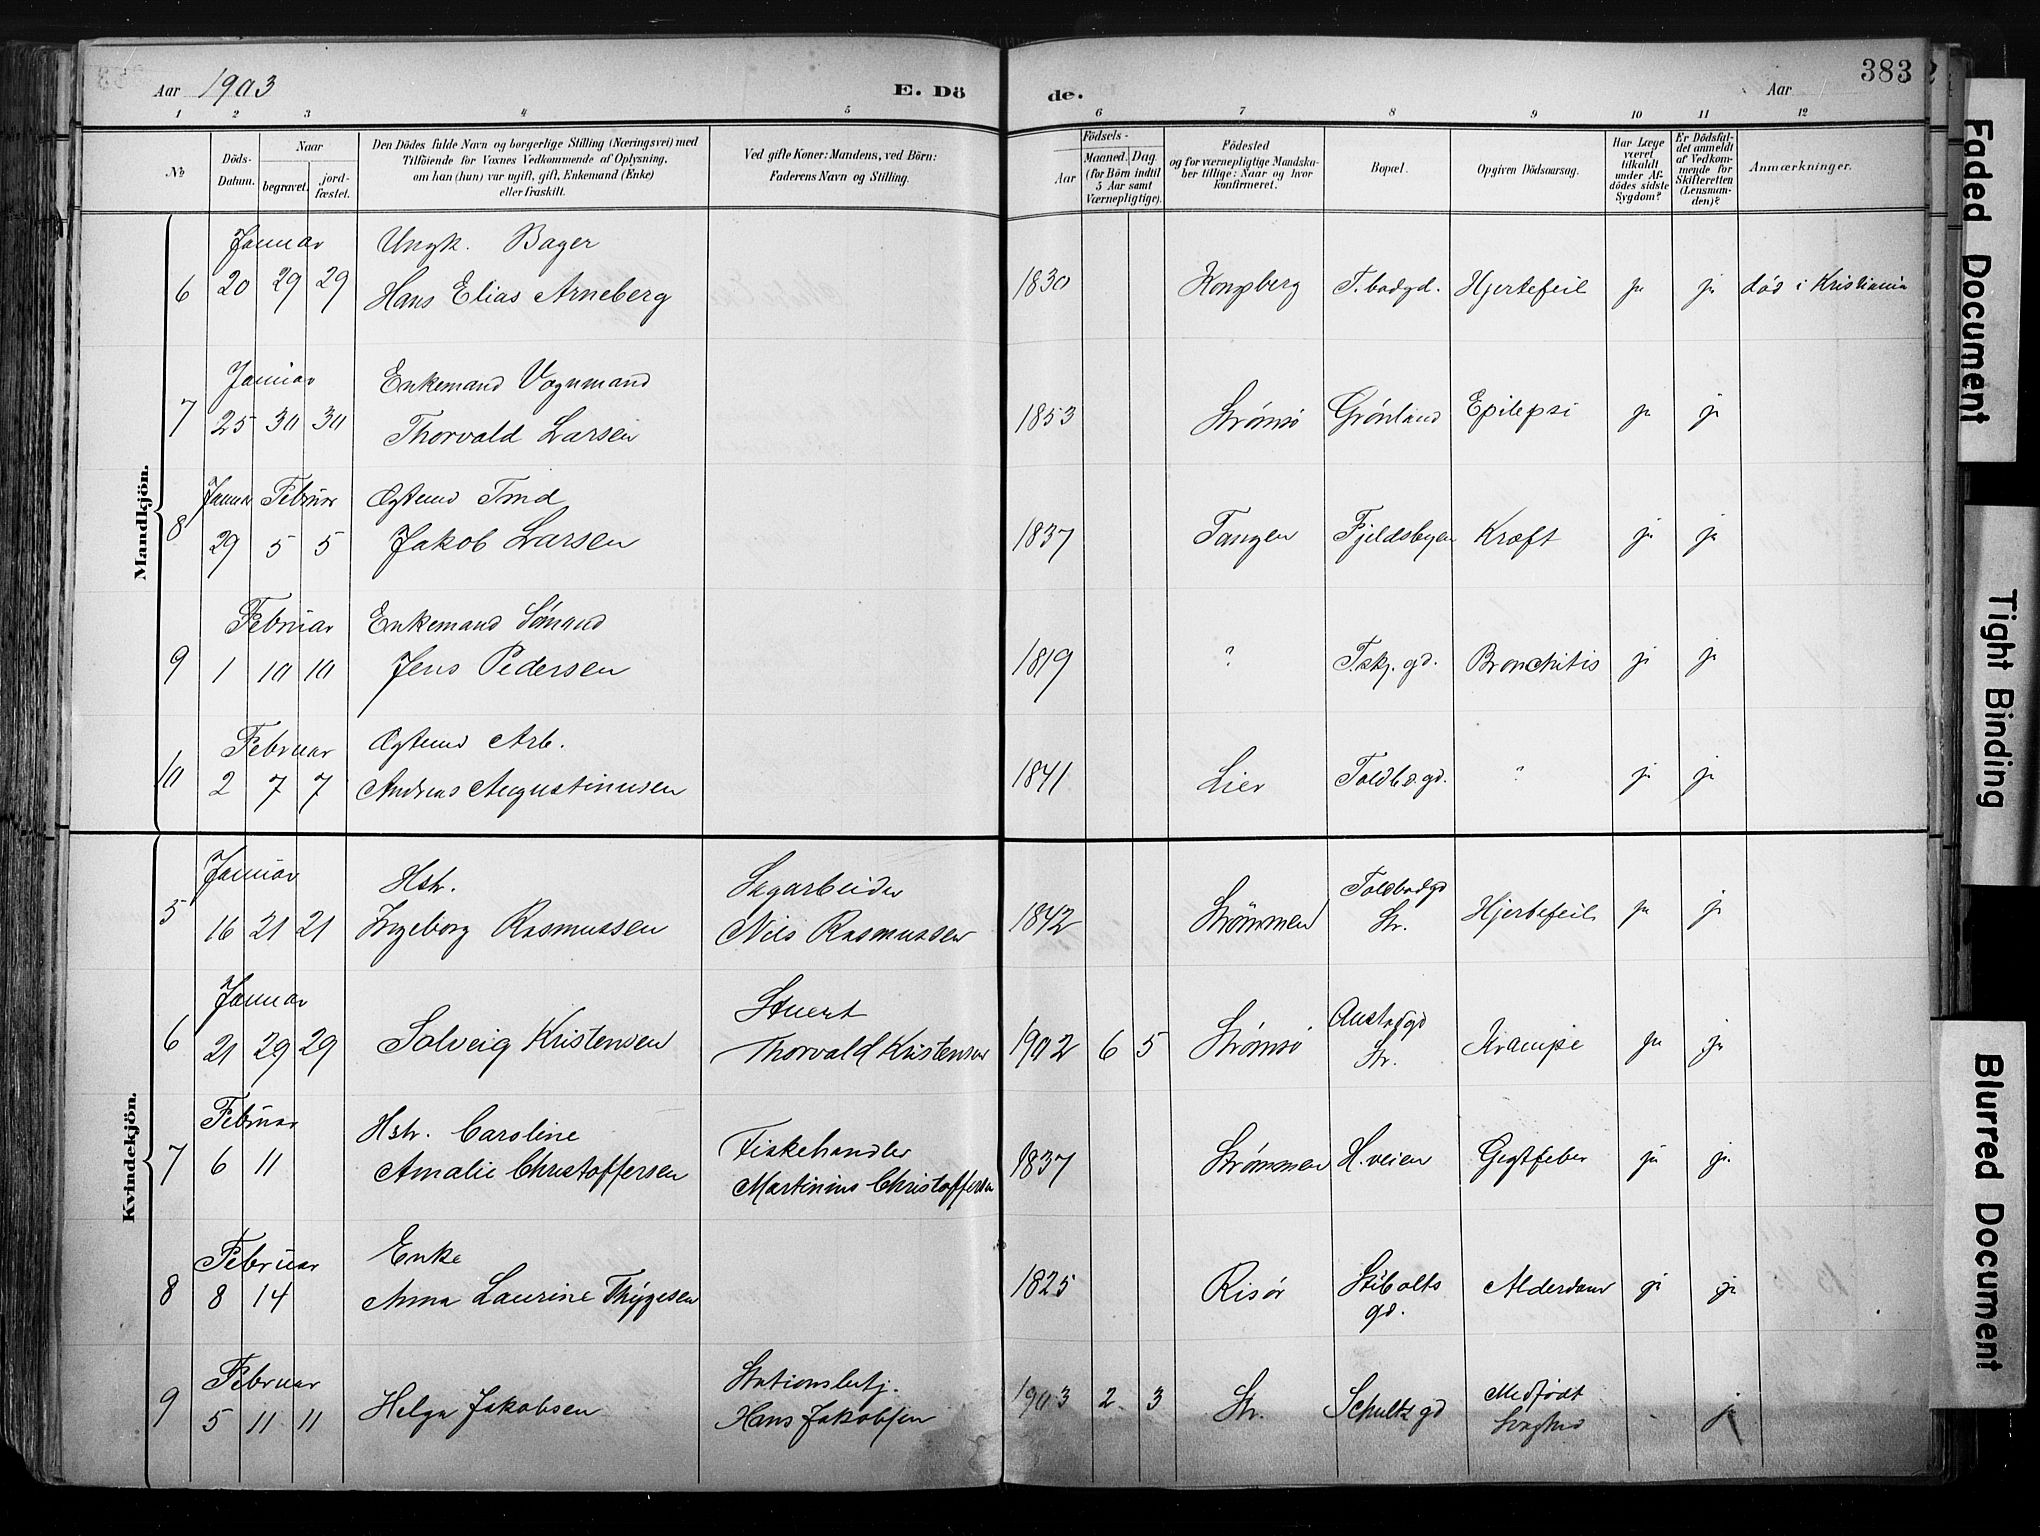 383
Aar 1903
E. Dö
de.
Aar
1 2 3 4 5 6 7 8 9 10 11 12
№
Döds-
Datum.
Naar
begravet.
jord-
fæstet.
Den Dödes fulde Navn og borgerlige Stilling (Næringsvei) med
Tilföiende for Voxnes Vedkommende af Oplysning,
om han (hun) var ugift, gift, Enkemand (Enke)
eller fraskilt.
Ved gifte Koner: Mandens, ved Börn:
Faderens Navn og Stilling.
Födsels-
Aar
Maaned. Dag.
(for Börn indtil
5 Aar samt
Værnepligtige).
Födested
og for værnepligtige Mandska-
ber tillige: Naar og hvor
konfirmeret.
Bopæl.
Opgiven Dödsaarsag.
Har Læge
været
tilkaldt
under Af-
dödes sidste
Sygdom?
Er Dödsfal-
det anmeldt
af Vedkom-
mende for
Skifteretten
(Lensman-
den)?
Anmærkninger.
Mandkjön.
Januar Ungk. Bager
6 20 29 29 Hans Elias Arneberg 1830 Kongsberg T.bodgd. Hjertefeil ja ja død i Kristiania
Januar Enkemand Vognmand
7 25 30 30 Thorvald Larsen 1853 Strømsø Grønland Epilepsi ja ja
Januar Februar Ægtemd Tmd
8 29 5 5 Jakob Larsen 1837 Tangen Fjeldsbyen Kræft ja ja
Februar Enkemand Sømand
9 1 10 10 Jens Pedersen 1819 " T.skj.gd. Bronchitis ja ja
Februar Ægtemd Arb.
10 2 7 7 Andreas Augustinusen 1841 Lier Toldb.gd. " ja ja
Kvindekjön.
Januar Hstr. Sagarbeider Toldbodgd
5 16 21 21 Ingeborg Rasmussen Nils Rasmussen 1842 Strømmen Str. Hjertefeil ja ja
Januar Stuert
6 21 29 29 Solveig Kristensen Thorvald Kristensen 1902 6 5 Strømsø Str. Krampe ja ja
Februar Hstr. Caroline Fiskehandler
7 6 11 Amalie Christoffersen Martinius Christoffersen 1837 Strømmen H.veien Gigtfeber ja ja
Februar Enke
8 8 14 Anna Laurine Thygesen 1825 Risør Stibolts Alderdom ja ja
gd.
Februar Stationsbetj. Medfødt
9 5 11 11 Helga Jakobsen Hans Jakobsen 1903 2 3 Str. Schultz gd Svaghed ja
Faded Document
Tight Binding
Blurred Document